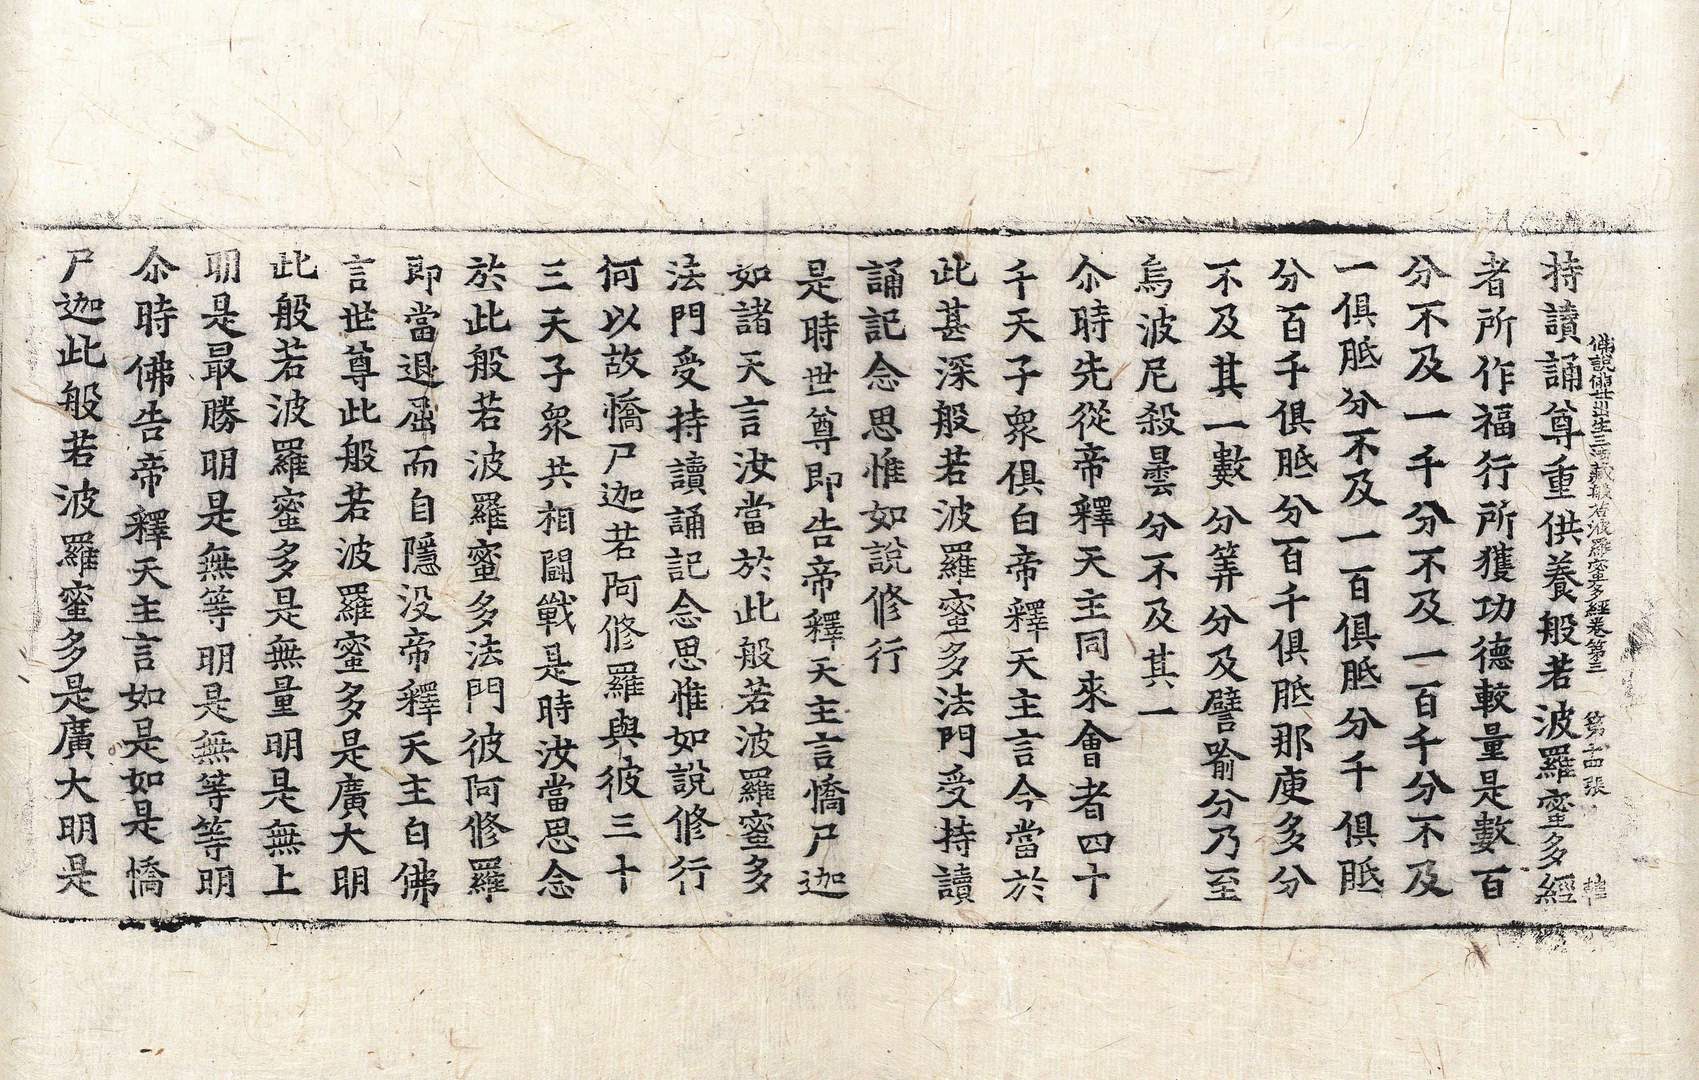 佛說佛母出生三法藏般若波羅蜜多經卷第三 第十四張
持讀誦尊重供養般若波羅蜜多經
者所作福行所獲功德較量是數百
分不及一千分不及一百千分不及
一俱胝分不及一百俱胝分千俱胝
分百千俱胝分百千俱胝那庾多分
不及其一數分筭分及譬喻分乃至
烏波尼殺曇分不及其一
尒時先從帝釋天主同來會者四十
千天子衆俱白帝釋天主言今當於
此甚深般若波羅蜜多法門受持讀
誦記念思惟如說修行
是時世尊即告帝釋天主言憍尸迦
如諸天言汝當於此般若波羅蜜多
法門受持讀誦記念思惟如說修行
何以故憍尸迦若阿修羅與彼三十
三天子衆共相鬪戰是時汝當思念
於此般若波羅蜜多法門彼阿修羅
即當退屈而自隱沒帝釋天主白佛
言世尊此般若波羅蜜多是廣大明
此般若波羅蜜多是無量明是無上
明是最勝明是無等明是無等等明
尒時佛告帝釋天主言如是如是憍
尸迦此般若波羅蜜多是廣大明是